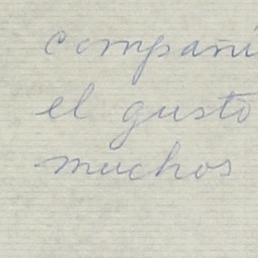 compañi
el gusto
muchos